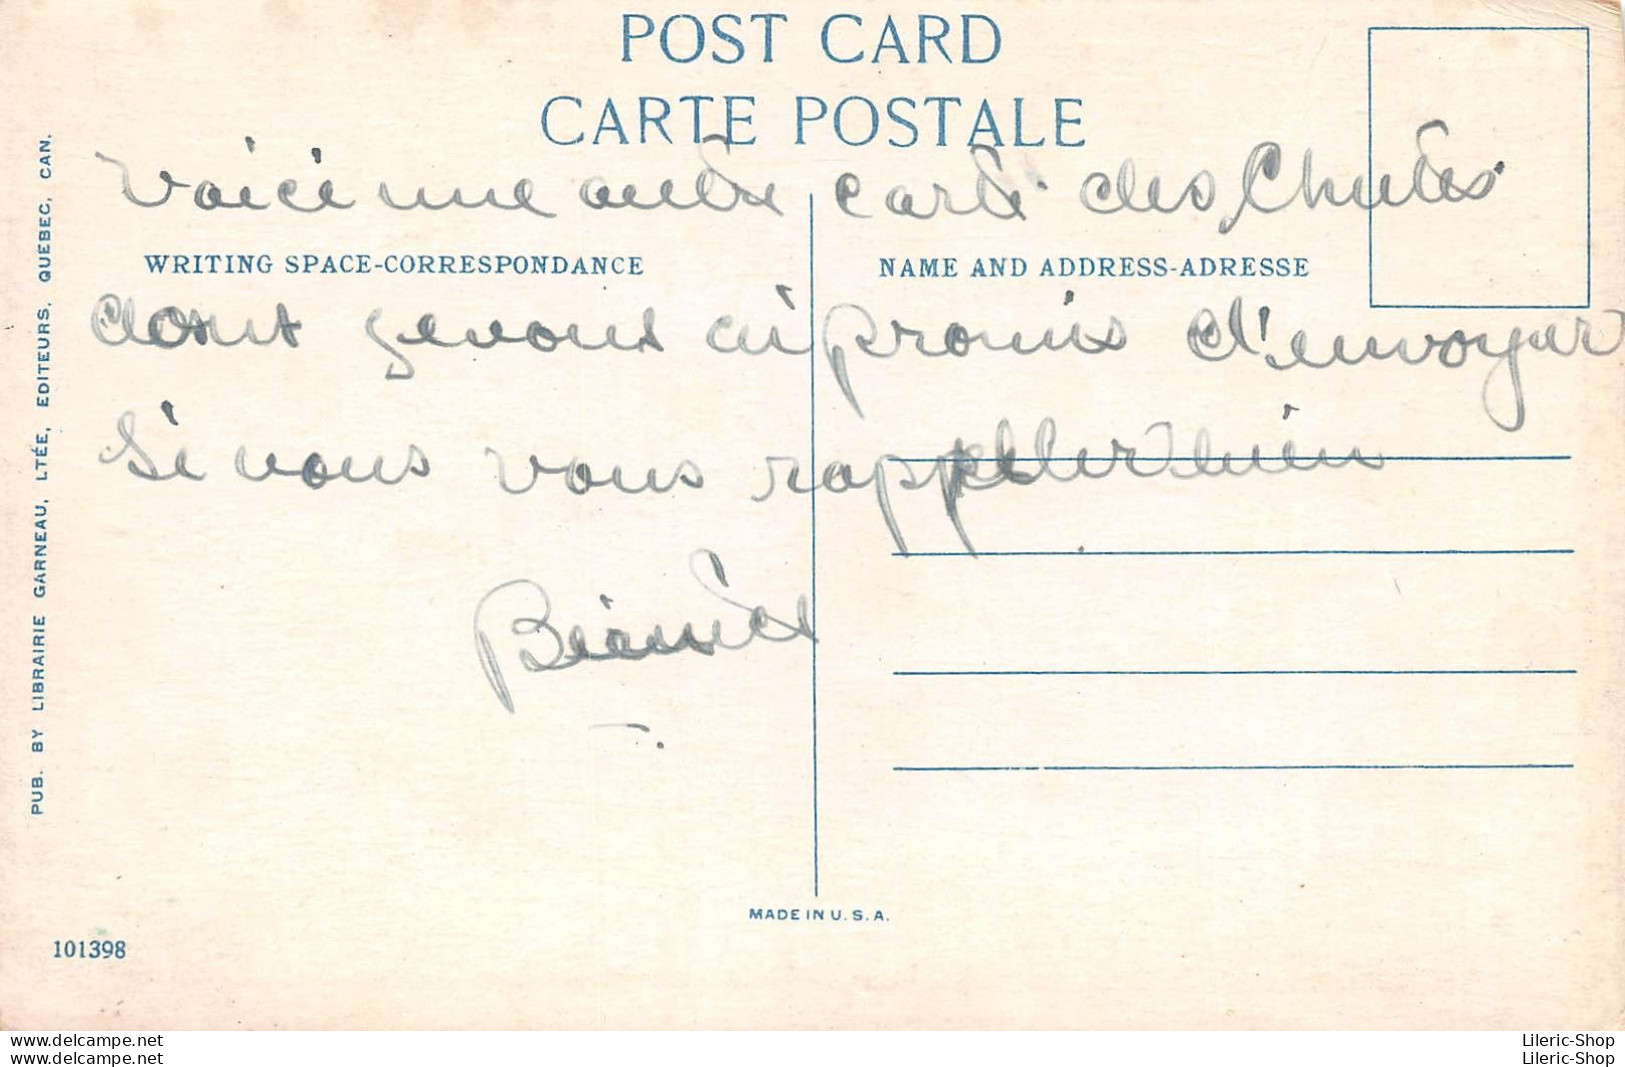 POST CARD
CARTE POSTALE
voici une autre carte des Chutes
WRITING SPACE-CORRESPONDANCE
NAME AND ADDRESS-ADRESSE
dont je vous ai promis d'envoyer
Si vous vous rappeller bien
PUB. BY LIBRAIRIE GARNEAU, LTÉE, EDITEURS, QUÉBEC, CAN.
MADE IN U.S.A.
101398
Lileric-Shop
Lileric-Shop
www.delcampe.net
www.delcampe.net